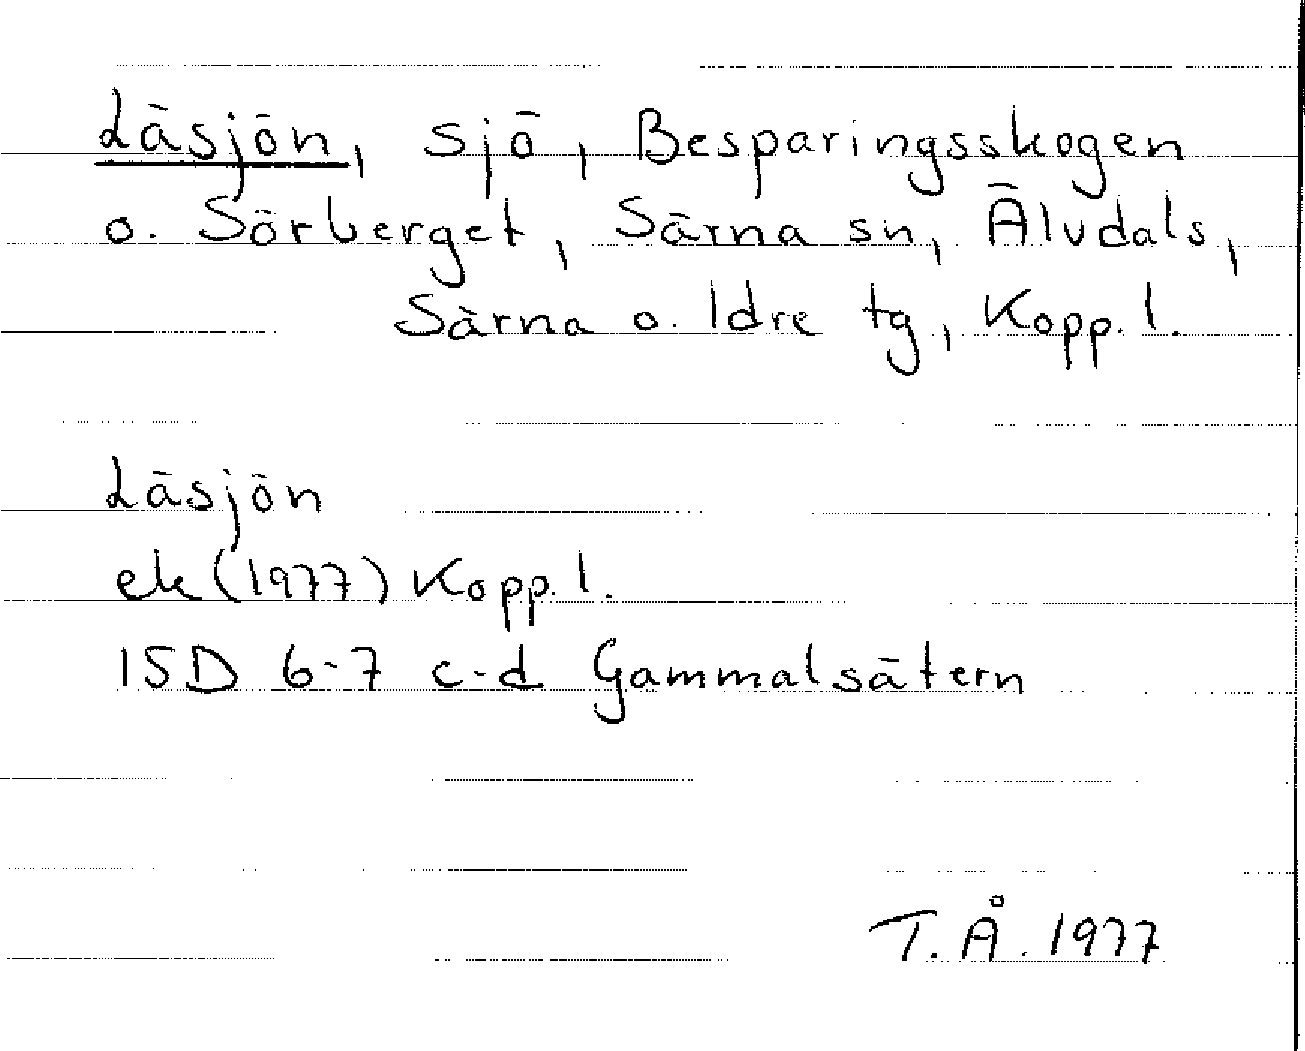 Läsjön, sjö, Besparingsskogen
o. Sörberget, Särna sn, Älvdals,
Särna o. Idre tg, Kopp. l.
Läsjön
ek (1977) Kopp. l.
15D 6-7 c-d Gammalsätern
T.Å. 1977